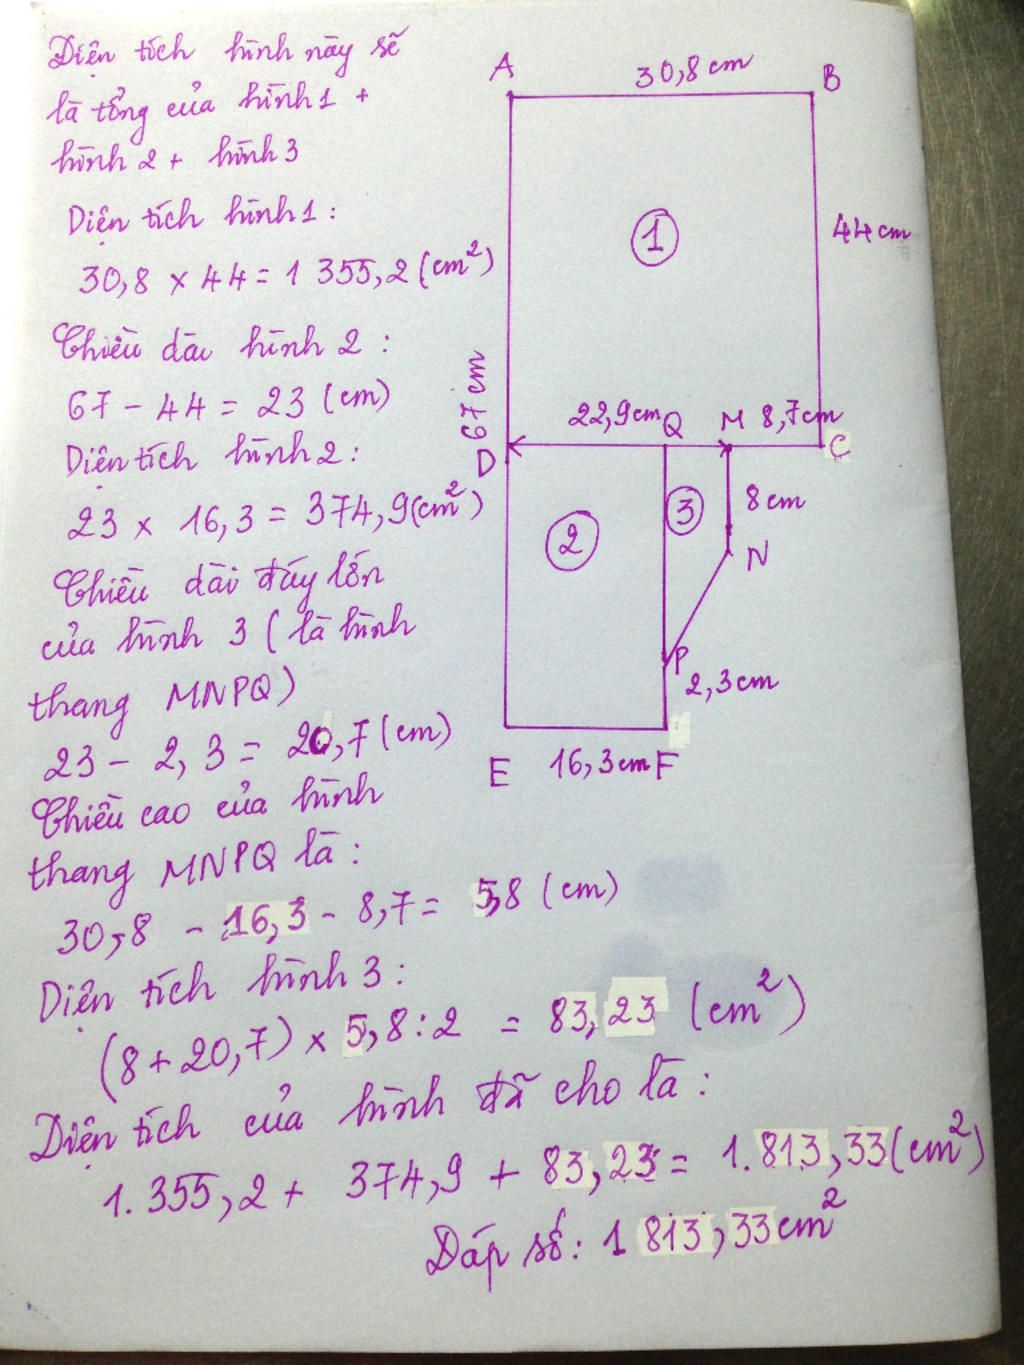 Diện tích hình này sẽ
là tổng của hình 1 +
hình 2 + hình 3
Diện tích hình 1 :
30,8 × 44 = 1 355,2 (cm²)
Chiều dài hình 2 :
67 - 44 = 23 (cm)
Diện tích hình 2 :
23 × 16,3 = 374,9(cm²)
Chiều dài đáy lớn
của hình 3 ( là hình
thang MNPQ)
23 - 2,3 = 20,7 (cm)
Chiều cao của hình
thang MNPQ là :
30,8 - 16,3 - 8,7 = 5,8 (cm)
Diện tích hình 3 :
(8 + 20,7) × 5,8 : 2 = 83,23 (cm²)
Diện tích của hình đã cho là :
1.355,2 + 374,9 + 83,23 = 1.813,33(cm²)
Đáp số: 1 813,33 cm²
A
30,8 cm
B
1
44 cm
67 cm
22,9cm
Q
M
8,7cm
D
C
2
3
8 cm
N
P
2,3cm
E
16,3cm
F